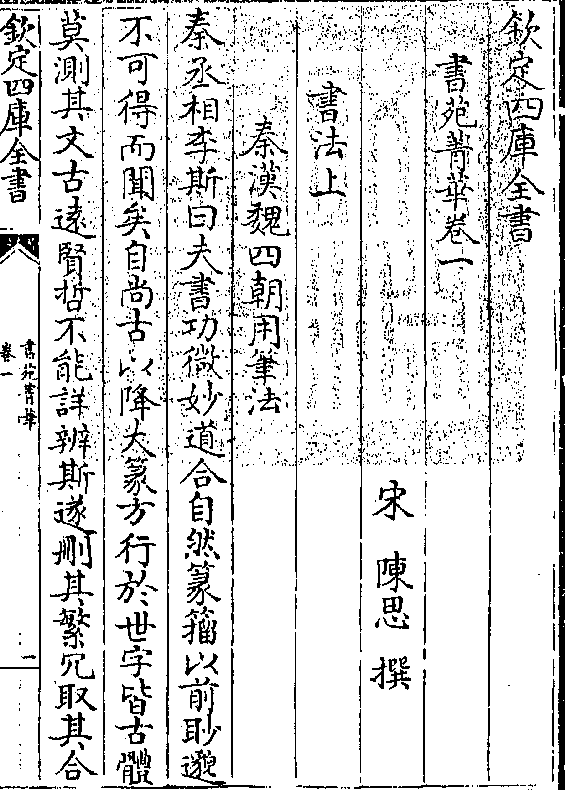 欽定四庫全書
書苑菁華卷一
宋 陳思 撰
書法上
秦漢魏四朝用筆法
秦丞相李斯曰夫書功微妙道合自然篆籀以前眇邈
不可得而聞矣自尚古以降大篆方行於世字皆古體
莫測其文古逺賢哲不能詳辨斯遂刪其繁冗取其合
欽定四庫全書
書苑菁華
卷一
一